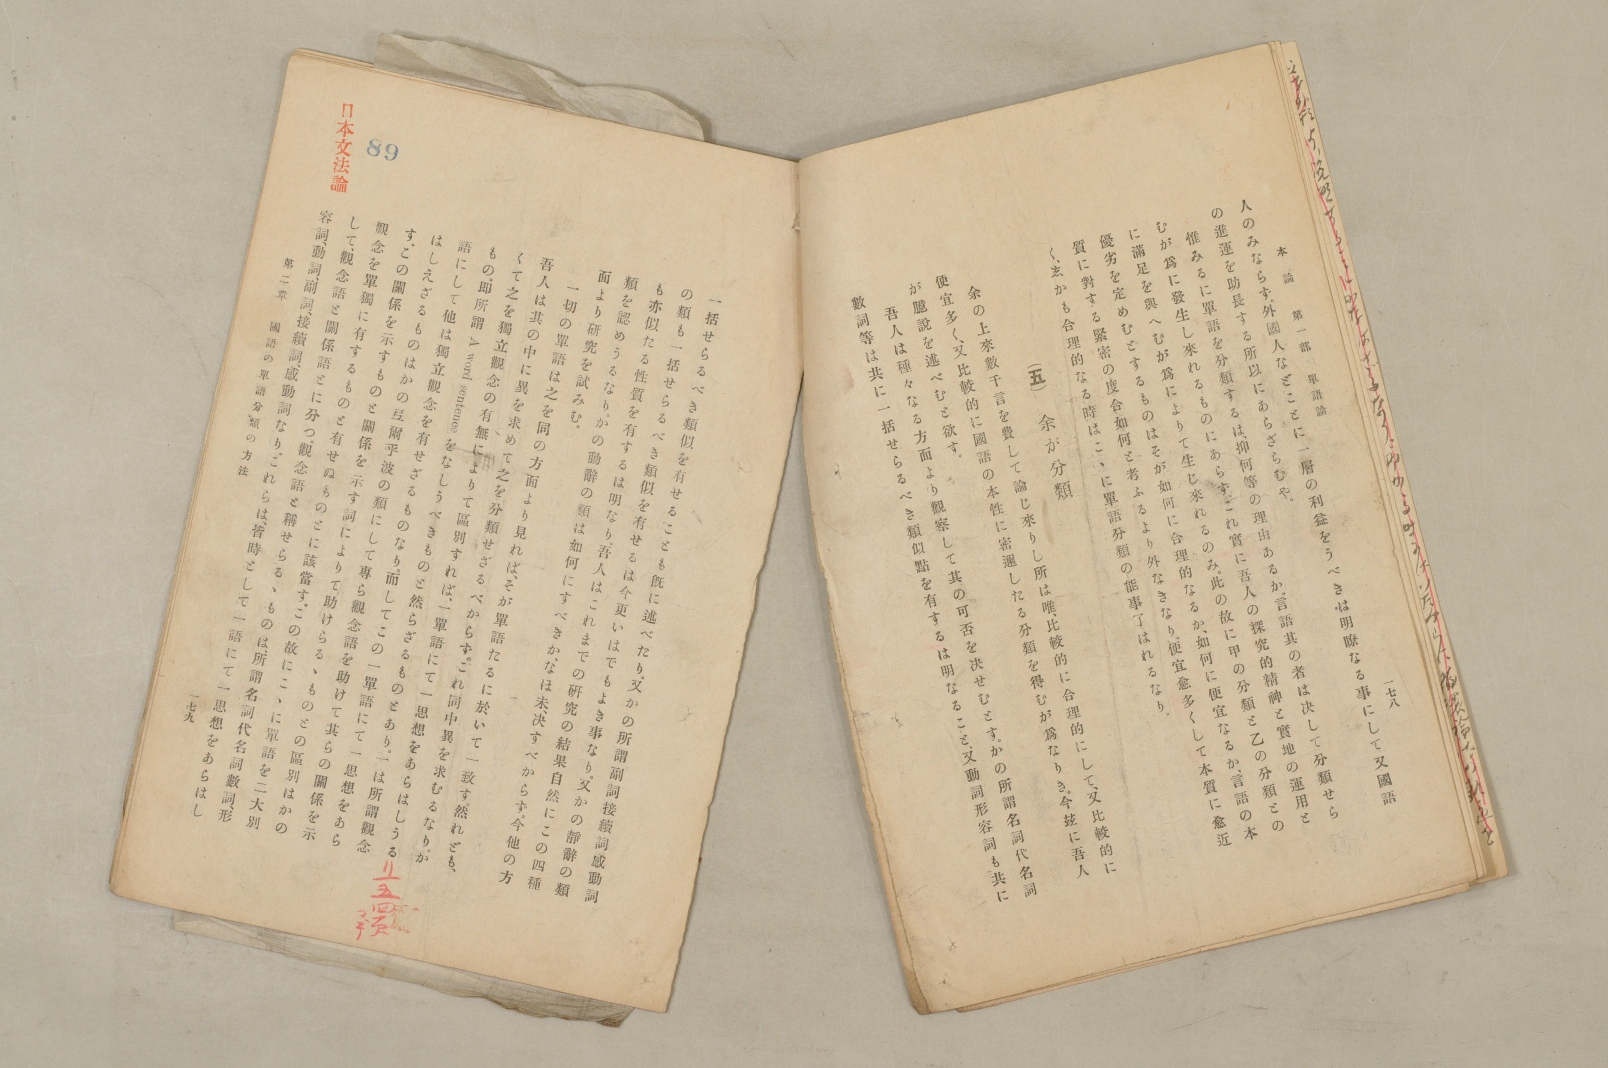 本論 第一部 單語論
一七八
人のみならず、外國人などことに一層の利益をうべきは明瞭なる事にして又國語
の進運を助長する所以にあらざらむや。
惟みるに單語を分類するは、抑何等の理由あるか。言語其の者は決して分類せら
むが爲に發生し來れるものにあらず。これ實に吾人の探究的精神と實地の運用と
に滿足を與へむが爲によりて生じ來れるのみ。此の故に甲の分類と乙の分類との
優劣を定めむとするものはそが如何に合理的なるか、如何に便宜なるか、言語の本
質に對する緊密の度合如何と考ふるより外なきなり。便宜愈多くして本質に愈近
く、玄かも合理的なる時はこゝに單語分類の能事了はれるなり。
(五) 余が分類
余の上來數千言を費して論じ來りし所は唯、比較的に合理的にして、又比較的に
便宜多く、又比較的に國語の本性に密邇したる分類を得むが爲なりき。今玆に吾人
が臆說を述べむと欲す。
吾人は種々なる方面より觀察して其の可否を決せむとす。かの所謂名詞代名詞
數詞等は共に一括せらるべき類似點を有するは明なること、又動詞形容詞も共に
一括せらるべき類似を有せることも既に述べたり。又かの所謂副詞接續詞感動詞
の類も一括せらるべき類似を有せるは今更いはでもよき事なり。又かの靜辭の類
も亦似たる性質を有するは明なり。吾人はこれまでの研究の結果自然にこの四種
類を認めうるなり。かの動辭の類は如何にすべきか、なほ未、決すべからず。今他の方
面より研究を試みむ。
一切の單語は之を同の方面より見れば、そが單語たるに於いて一致す。然れども、
吾人は其の中に異を求めて之を分類せざるべからず。これ同中異を求むるなり。か
くて之を獨立觀念の有無によりて區別すれば、一單語にて一思想をあらはしうる
もの、即所謂 A word sentence をなしうべきものと然らざるものとあり。一は所謂觀念
語にして他は獨立觀念を有せざるものなり。而してこの一單語にて一思想をあら
はしえざるものはかの弖爾乎波の類にして專ら觀念語を助けて其らの關係を示
す。この關係を示すものと關係を示す詞によりて助けらるゝものとの區別はかの
觀念を單獨に有するものと有せぬものとに該當す。この故にこゝに單語を二大別
して、觀念語と關係語とに分つ。觀念語と稱せらるゝものは、所謂名詞代名詞數詞、形
容詞、動詞、副詞、接續詞、感動詞なり。これらは、皆時として一語にて一思想をあらはし
第二章 國語の單語分類の方法
一七九
89
日本文法論